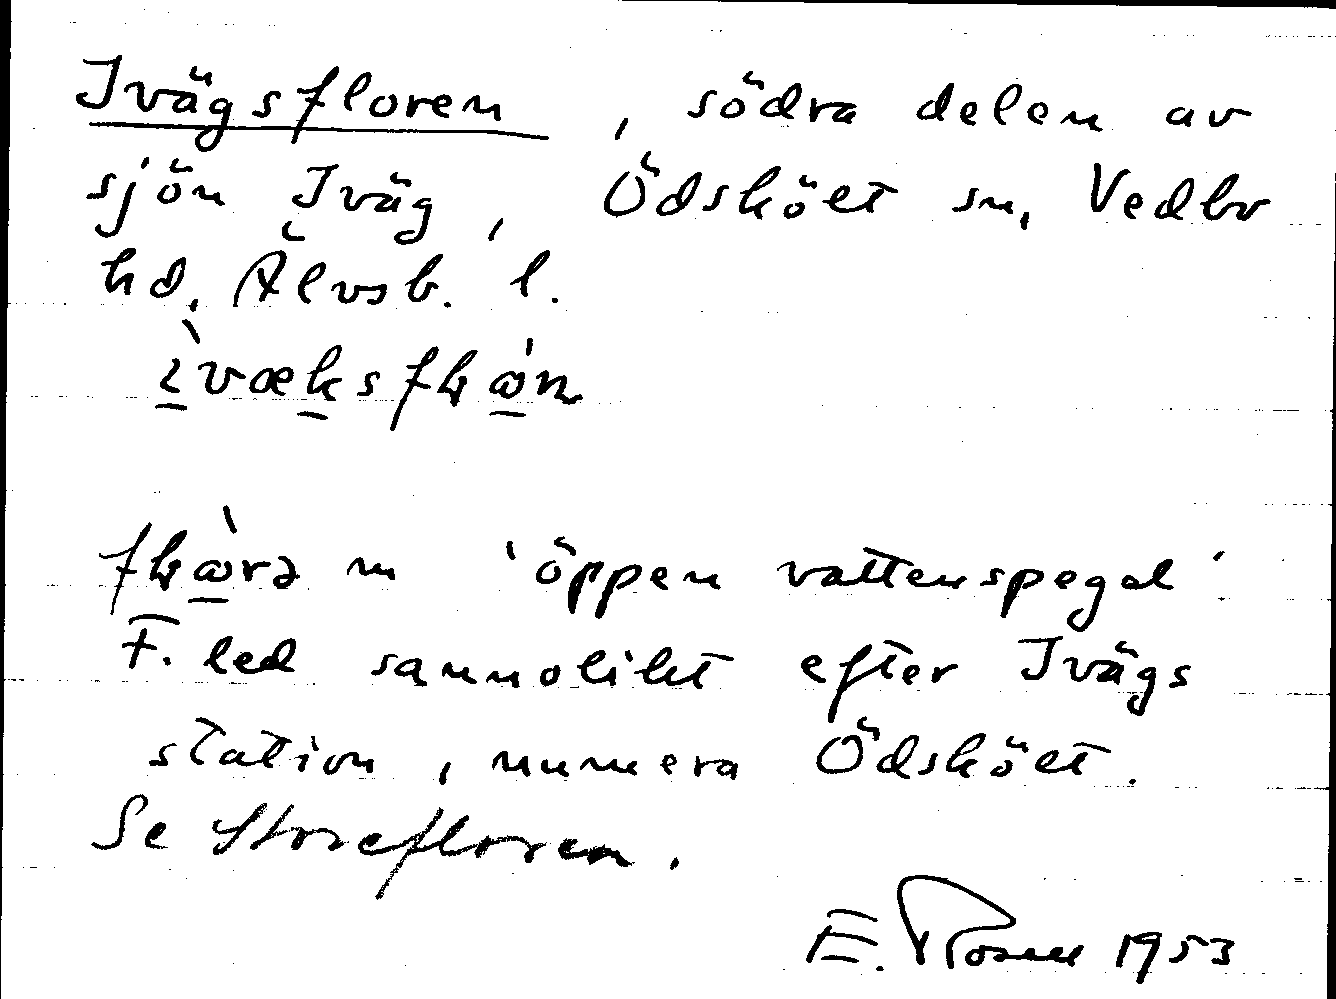 Ivägsfloren, södra delen av
sjön Iväg, Ödsköet sn, Vedbo
hd. Älvsb. l.
m 'öppen vattenspegel'
F. led sannolikt efter Ivägs
station, numera Ödsköet.
Se Storefloren.
E. Rosell 1953